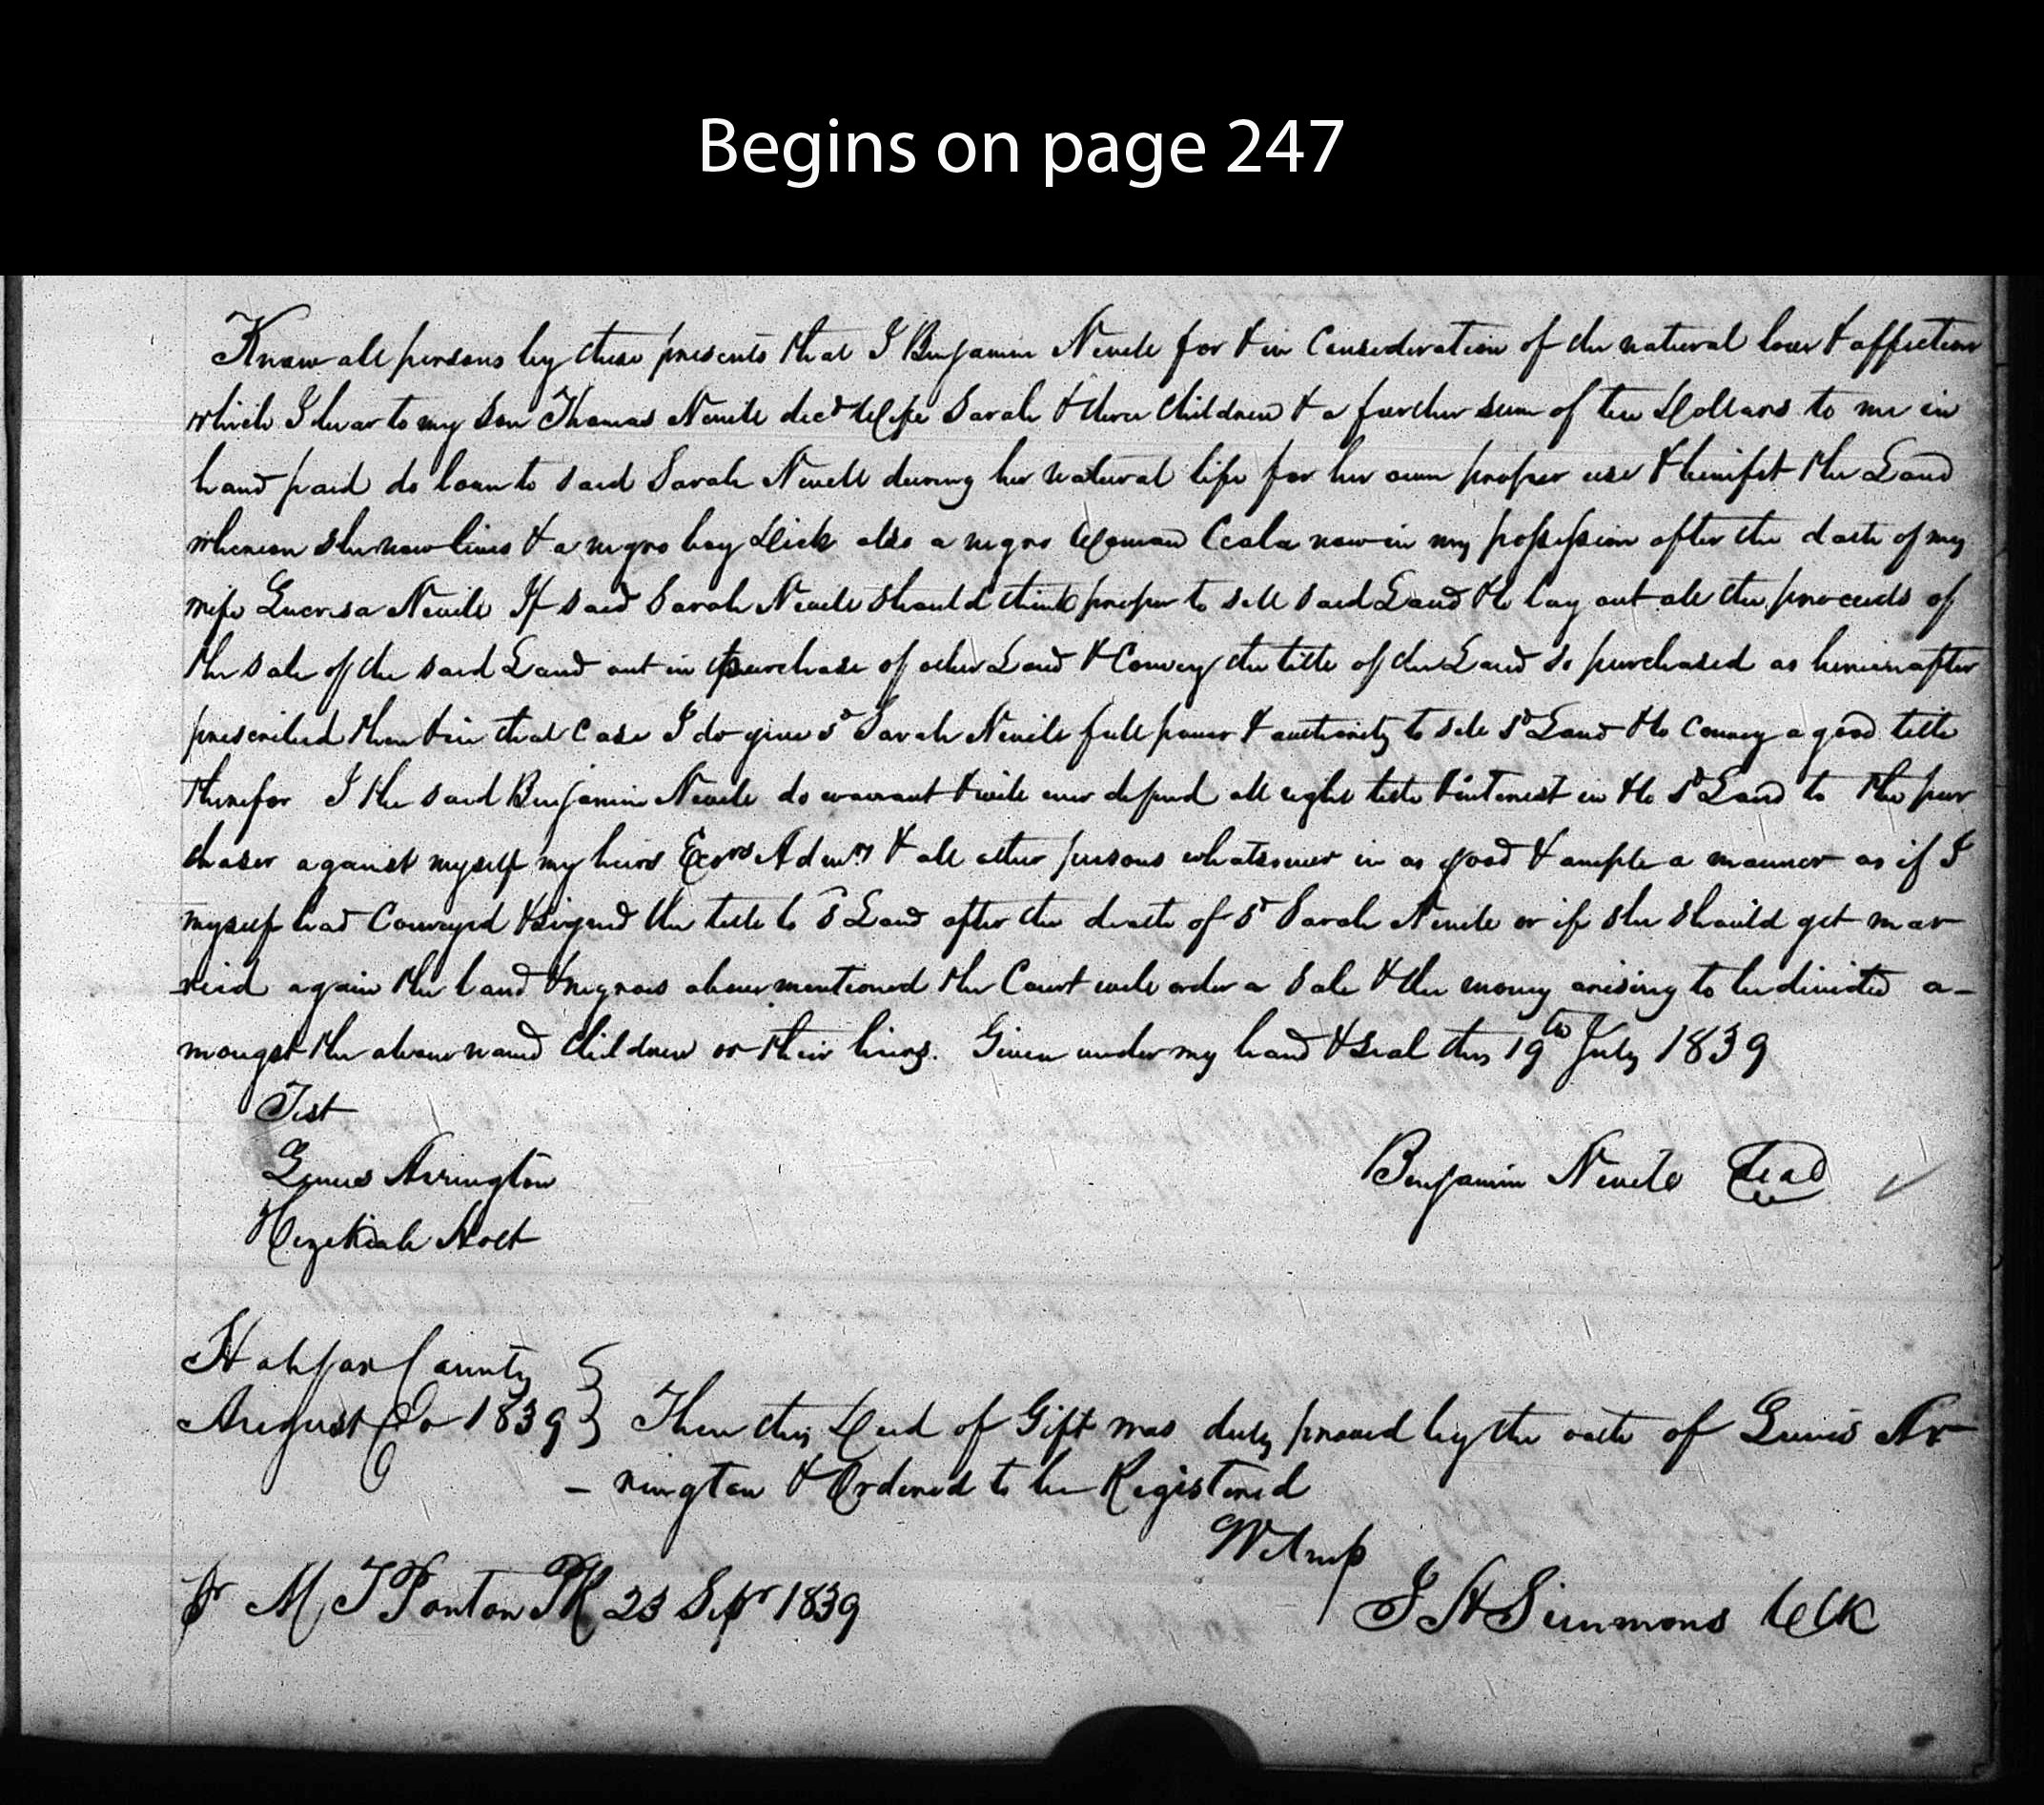 Begins on page 247
Know all persons by these presents that I Benjamin Nevile for & in Consideration of the natural love & affection
which I bear to my Son Thomas Nevile decd Wife Sarah & their Children & a further sum of ten Dollars to me in
hand paid do loan to said Sarah Nevill during her natural life for her own proper use & benifit the Land
whereon she now lives & a negro boy Dick also a negro Woman Ceala now in my possession after the death of my
wife Lucresa Nevile If said Sarah Nevile should think proper to sell said Land & to lay out all the proceeds of
the sale of the said Land out in purchase of other Land & Convey the title of the Land so purchased as hereinafter
prescribed then & in that Case I do give sd Sarah Nevile full power & authority to sell sd Land & to Convey a good title
therefor I the said Benjamin Nevile do warrant & will ever defend all right title & interest in & to sd Land to the pur
chaser against myself my heirs Exors Admrs & all other persons whatsoever in as good & ample a manner as if I
myself had Conveyed & signed the title to sd Land after the death of sd Sarah Nevile or if she should get mar
reid again the land & negroes above mentioned the Court will order a Sale & the money arising to be divided a-
mongst the above named Children or their heirs. Given under my hand & seal this 19th July 1839
Test
Lewis Arrington
Benjamin Nevile Seal
Hezekiah Holt
Halifax County
August Co 1839 } Then this Deed of Gift was duly proved by the oath of Lewis Ar
- rington & Ordered to be Registered
Witness
pr M T Ponton PR 23 Sepr 1839
J H Simmons Clk